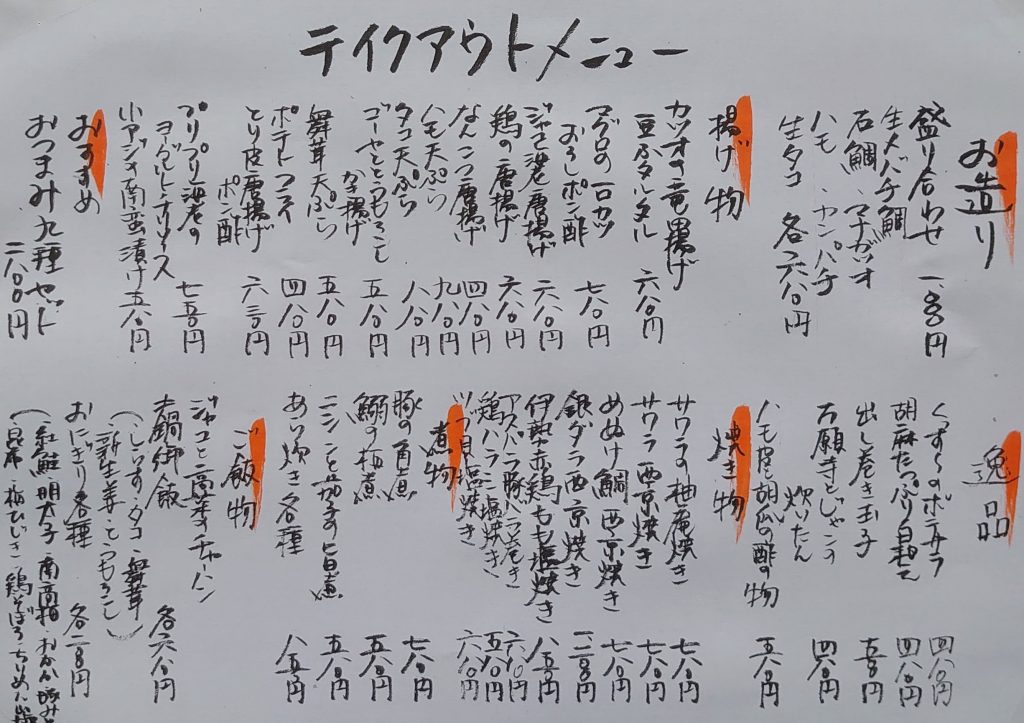 テイクアウトメニュー
お造り
盛り合わせ 一、八〇〇円
生メバチ鮪
石鯛、マナガツオ
ハモ、カンパチ
生タコ 各六八〇円
揚げ物
カツオの竜田揚げ
豆ふタルタル 六八〇円
マグロの一口カツ
おろしポン酢 七八〇円
ジャンボ海老唐揚げ
鶏の唐揚げ 六八〇円
なんこつ唐揚げ 四八〇円
ハモ天ぷら 九八〇円
タコ天ぷら 八八〇円
ゴーヤととうもろこし
かき揚げ 五八〇円
舞茸天ぷら 五八〇円
ポテトフライ 四八〇円
とり皮唐揚げ
ポン酢
プリプリ海老の
ヨーグルトソース 七五〇円
小アジの南蛮漬け 五八〇円
おすすめ
おつまみ九種セット
二八〇〇円
逸品
くずしのポテサラ 四八〇円
胡麻たっぷり白和え 四八〇円
出し巻き玉子 五五〇円
万願寺とじゃこの
炊いたん 四八〇円
ハモ皮と胡瓜の酢の物 五八〇円
焼き物
サワラの柚庵焼き 七八〇円
サワラ西京焼き 七八〇円
めぬけ鯛西京焼き 七八〇円
銀ダラ西京焼き
伊勢赤鶏もも塩焼き 八五〇円
アスパラ豚バラ巻き 六八〇円
鶏ハラミ塩焼き 五八〇円
ツブ貝塩焼き 六八〇円
煮物
豚の角煮 七八〇円
鰯の梅煮 五八〇円
ニシンと茄子の旨煮 五八〇円
あい炊き各種 八五〇円
ご飯物
ジャコと高菜のチャーハン
土鍋御飯 各六八〇円
(しらす・タコ・舞茸
・新生姜・とうもろこし)
おにぎり各種 各二五〇円
(紅鮭・明太子・南高梅・おかか
昆布・梅ひじき・鶏そぼろ・ちりめん山椒